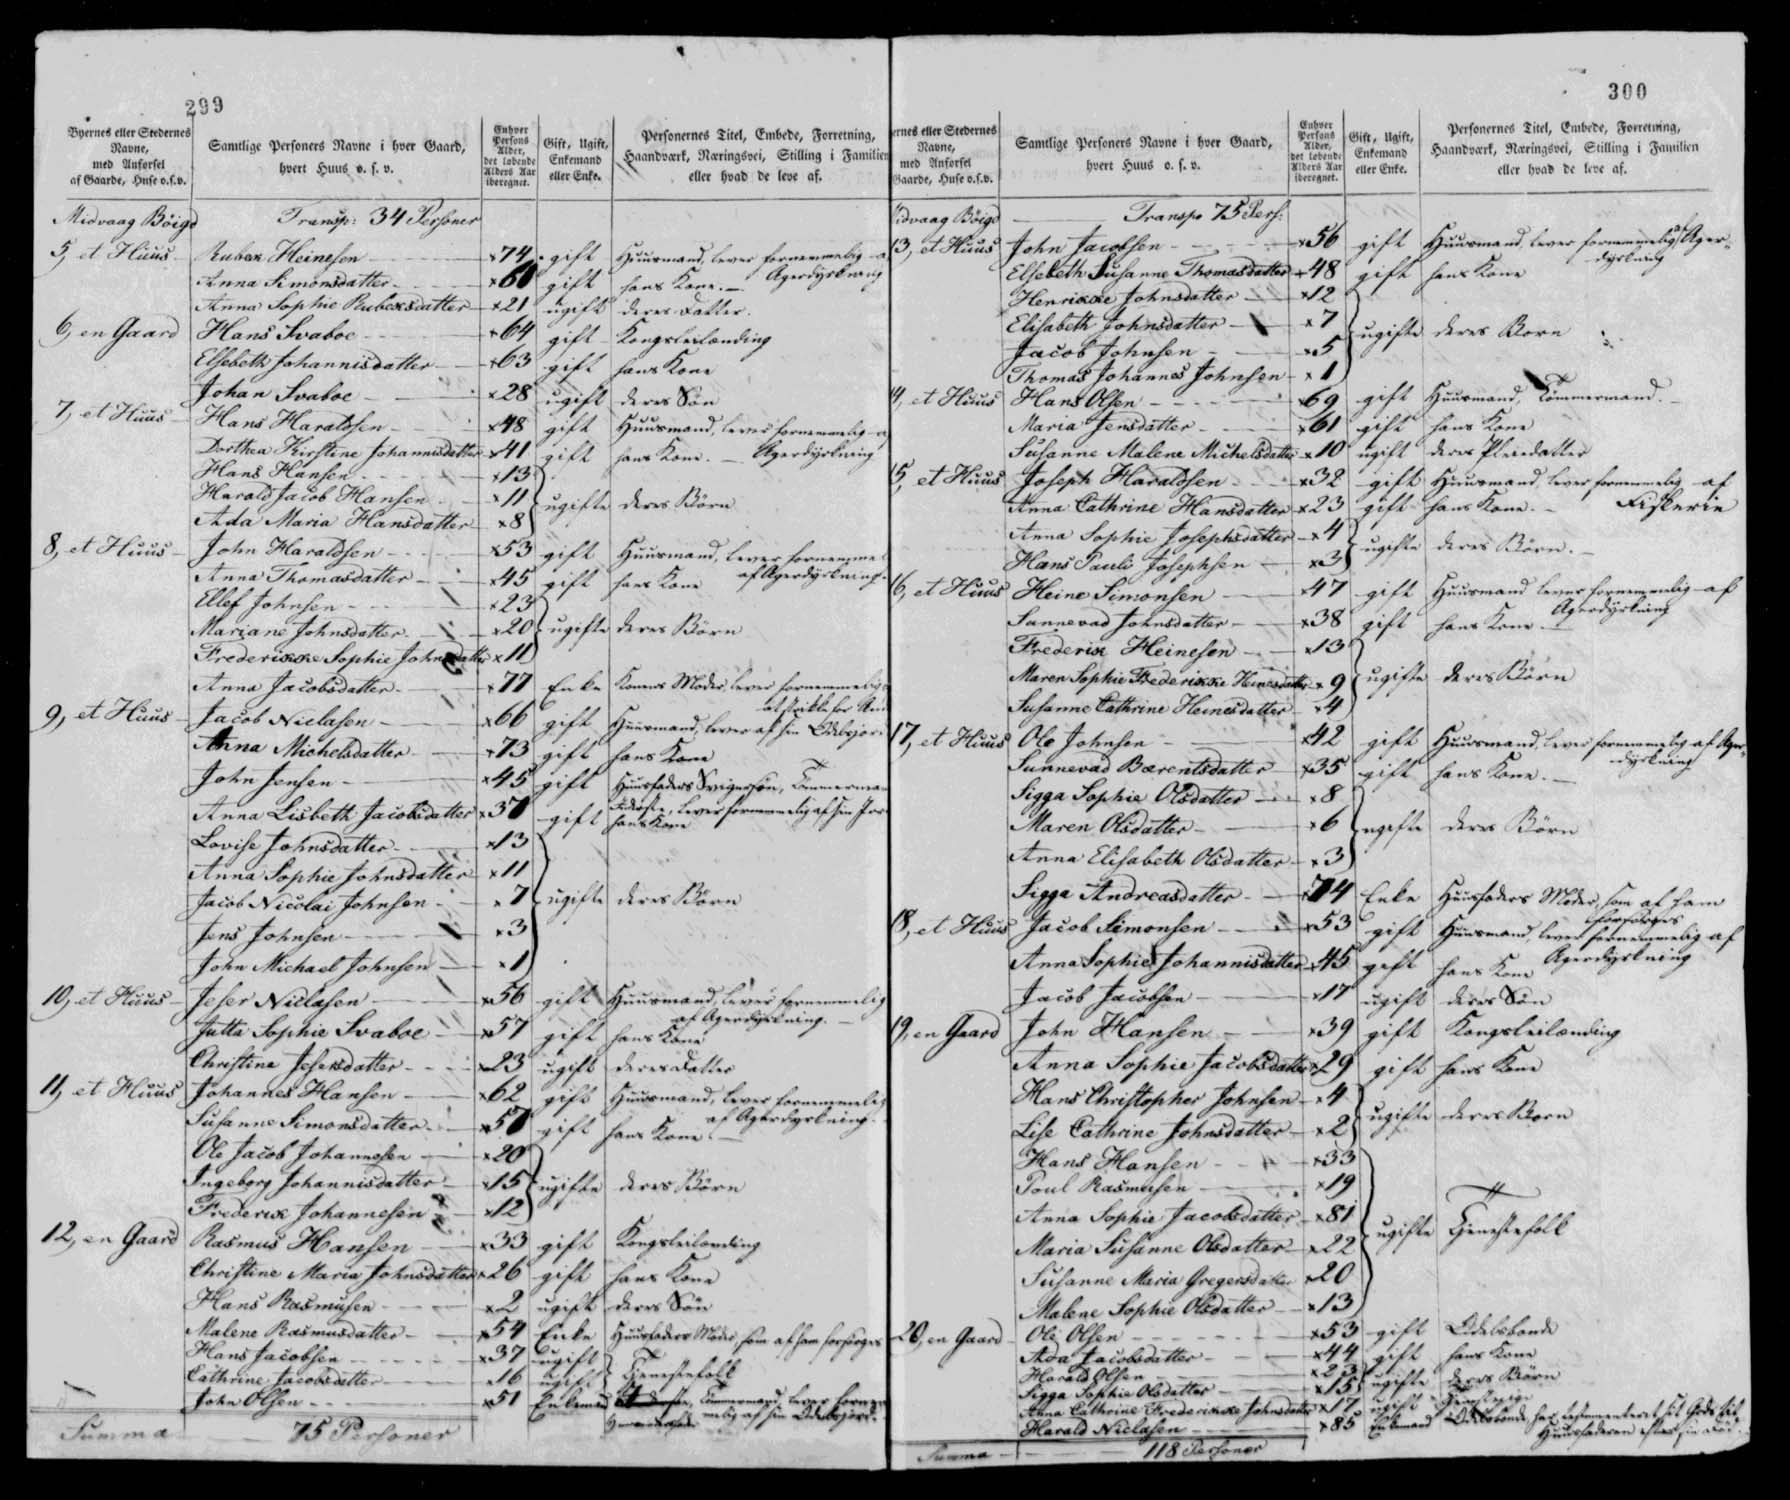 299
Byernes eller Stedernes Navne, med Anførsel af Gaarde, Huse o.s.v.
Samtlige Personers Navne i hver Gaard, hvert Huus o. s. v.
Enhver Persons Alder, det løbende Alders Aar iberegnet.
Gift, Ugift, Enkemand eller Enke.
Personernes Titel, Embede, Forretning, Haandværk, Næringsvei, Stilling i Familien eller hvad de leve af.
Midvaag Böigd Transp: 34 Personer
5, et Huus Rubek Heinesen x74 gift Huusmand, lever fornemmelig a Agerdyrkning
Anna Simonsdatter x60 gift hans Kone
Anna Sophie Rubeksdatter x21 ugift deres Datter.
6, en Gaard Hans Svaboe x64 gift Kongsleilænding
Elsebeth Johannisdatter x63 gift hans Kone
Johan Svaboe x28 ugift deres Sön
7, et Huus Hans Haraldsen x48 gift Huusmand, lever fornemmelig a Agerdyrkning
Dorthea Kirstine Johannisdatter x41 gift hans Kone.
Hans Hansen x13
Harald Jacob Hansen x11 ugifte deres Börn
Ada Maria Hansdatter x8
8, et Huus John Haraldsen x53 gift Huusmand, lever fornemme af Agerdyrkning.
Anna Thomasdatter x45 gift hans Kone
Ellef Johnsen x23
Mariane Johnsdatter x20 ugifte deres Börn
Frederikke Sophie Johnsdatter x11
Anna Jacobsdatter x77 Enke Konens Moder, lever fornemmelig
9, et Huus Jacob Niclasen x66 gift Huusmand, lever af sin Odelsjor
Anna Michelsdatter x73 gift hans Kone
John Jensen x45 gift Huusfaders Svigersön, Tömmerma
lever fornemmelig af sin Jor
Anna Lisbeth Jacobsdatter x37 gift hans Kone
Lovise Johnsdatter x13
Anna Sophie Johnsdatter x11
Jacob Nicolai Johnsen x7 ugifte deres Börn
Jens Johnsen x3
John Michael Johnsen x1
10, et Huus Jeser Niclasen x56 gift Huusmand, lever fornemmelig af Agerdyrkning.
Jutta Sophie Svaboe x57 gift hans Kone
Christine Jesersdatter x23 ugift deres Datter
11, et Huus Johannes Hansen x62 gift Huusmand, lever fornemmelig af Agerdyrkning.
Susanne Simonsdatter x57 gift hans Kone
Ole Jacob Johannesen x20
Ingeborg Johannisdatter x15 ugifte deres Börn
Frederik Johannesen x12
12, en Gaard Rasmus Hansen x33 gift Kongsleilænding
Christine Maria Johnsdatter x26 gift hans Kone
Hans Rasmusen x2 ugift deres Sön
Malene Rasmusdatter x54 Enke Huusfaders Moder, som af ham forsörges
Hans Jacobsen x37 ugift
Cathrine Jacobsdatter x16 ugift Tjenestefolk
John Olsen x51 Enkemand Tömmermand, lever fornem melig af sin Odelsjord.
Summa 75 Personer
300
ernes eller Stedernes Navne, med Anførsel Gaarde, Huse o.s.v.
Samtlige Personers Navne i hver Gaard, hvert Huus o. s. v.
Enhver Persons Alder, det løbende Alders Aar iberegnet.
Gift, Ugift, Enkemand eller Enke.
Personernes Titel, Embede, Forretning, Haandværk, Næringsvei, Stilling i Familien eller hvad de leve af.
idvaag Böigd Transp 75 Pers:
13, et Huus John Jacobsen x56 gift Huusmand, lever fornemmelig af Ager- dyrkning
Elsebeth Susanne Thomasdatter x48 gift hans Kone
Henrikke Johnsdatter x12
Elisabeth Johnsdatter x7 ugifte deres Born
Jacob Johnsen x5
Thomas Johannes Johnsen x1
14, et Huus Hans Olsen x69 gift Huusmand, Tömmermand.
Maria Jensdatter x61 gift hans Kone
Susanne Malene Michelsdatter x10 ugift deres Pleiedatter
15, et Huus Joseph Haraldsen x32 gift Huusmand, lever fornemmelig af Fiskerie
Anna Cathrine Hansdatter x23 gift hans Kone.
Anna Sophie Josephsdatter x4 ugifte deres Börn.
Hans Pauli Josephsen x3
16, et Huus Heine Simonsen x47 gift Huusmand lever fornemmelig af Agerdyrkning
Sannevad Johnsdatter x38 gift hans Kone
Frederik Heinesen x13
Maren Sophie Frederikke Heinesdatter x9 ugifte deres Börn
Susanne Cathrine Heinesdatter x4
17, et Huus Ole Johnsen x42 gift Huusmand, lever fornemmelig af Ager- dyrkning
Sunnevad Bærentsdatter x35 gift hans Kone.
Sigga Sophie Olsdatter x8
Maren Olsdatter x6 ugifte deres Börn
Anna Elisabeth Olsdatter x3
Sigga Andreasdatter x74 Enke Huusfaders Moder, som af ham forsörges
18, et Huus Jacob Simonsen x53 gift Huusmand, lever fornemmelig af Agerdyrkning
Anna Sophie Johannisdatter x45 gift hans Kone
Jacob Jacobsen x17 ugift deres Sön
19, en Gaard John Hansen x39 gift Kongsleilænding
Anna Sophie Jacobsdatter x29 gift hans Kone
Hans Christopher Johnsen x4 ugifte deres Born
Lise Cathrine Johnsdatter x2
Hans Hansen x33
Poul Rasmusen x19
Anna Sophie Jacobsdatter x81 ugifte Tjenestefolk
Maria Susanne Olsdatter x22
Susanne Maria Gregersdatter x20
Malene Sophie Olsdatter x13
20, en Gaard Ole Olsen x53 gift Odelsbonde
Ada Jacobsdatter x44 gift hans Kone
Harald Olsen x23 ugifte deres Börn
Sigga Sophie Olsdatter x15
Anna Cathrine Frederikke Johnsdatter x17 ugift Tjenestepige
Harald Niclasen x85 Enkemand Odelsbonde, har testamenteret sit Gods til Huusfaderen efter sin Död.
Summa 118 Personer